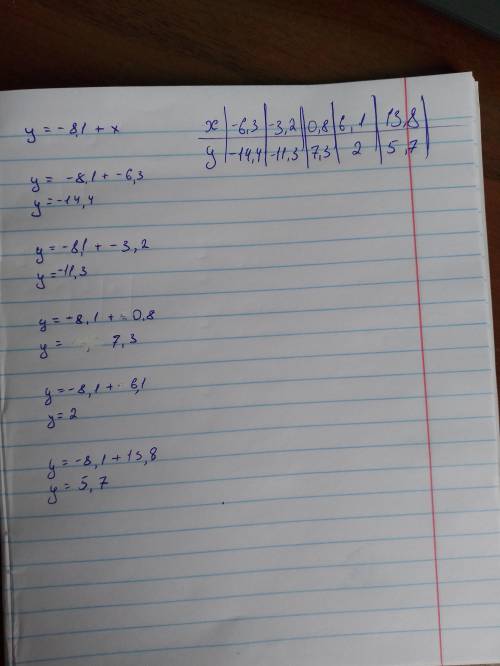 y = -8,1 + x
x | -6,3 | -3,2 | 0,8 | 6,1 | 13,8 |
y | -14,4 | -11,3 | 7,3 | 2 | 5,7 |
y = -8,1 + -6,3
y = -14,4
y = -8,1 + -3,2
y = -11,3
y = -8,1 + 0,8
y = 7,3
y = -8,1 + 6,1
y = 2
y = -8,1 + 13,8
y = 5,7